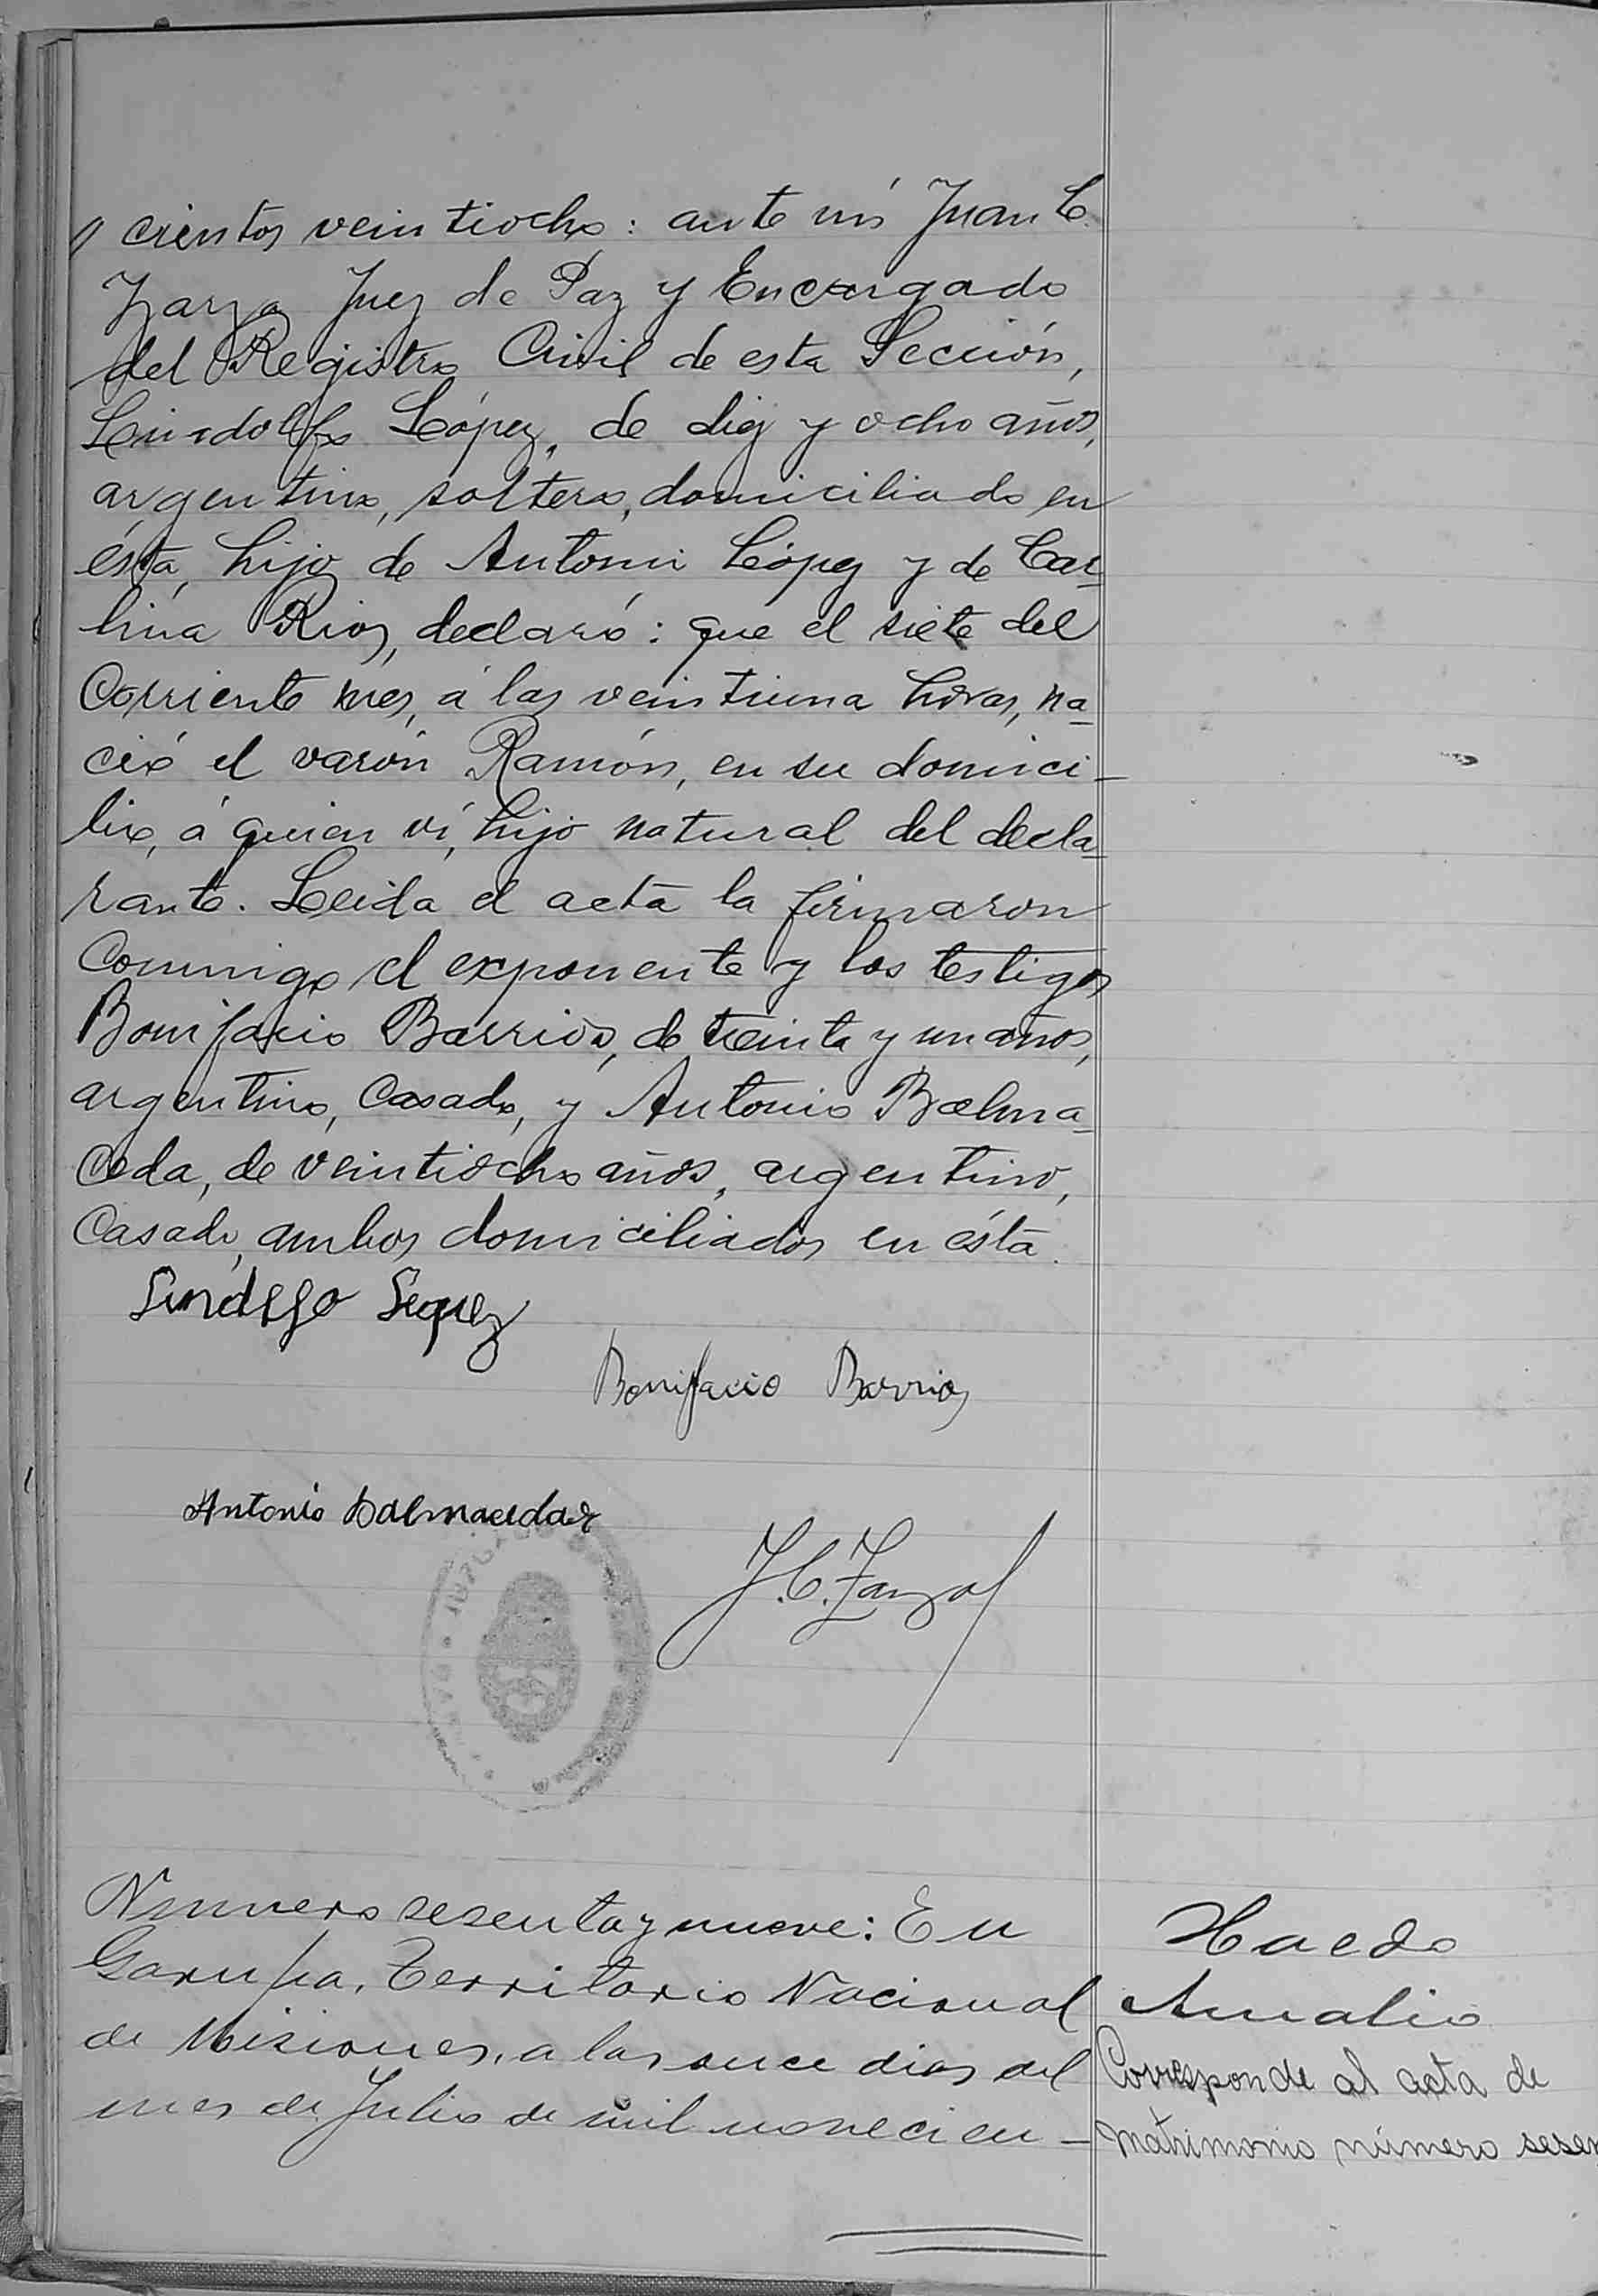 cientos veintiocho: ante mí Juan C.
Zarza Juez de Paz y Encargado
del Registro Civil de esta Sección,
Lindolfo López, de diez y ocho años,
argentino, soltero, domiciliado en
ésta, hijo de Antonio López y de Car-
lina Rios, declaró: que el siete del
Corriente mes, á las veintiuna horas, na-
ció el varón Ramón, en su domici-
lio, á quien ví, hijo natural del decla-
rante. Leida el acta la firmaron
Conmigo el exponente y los testigos
Bonifacio Barrios, de treinta y un años,
argentino, Casado, y Antonio Balma-
ceda, de veintiocho años, argentino,
Casado, ambos domiciliados en ésta.
Bonifacio Barrios
Antonio
J. C. Zarza
Numero sesenta y nueve: En
Garupa, Territorio Nacional
de Misiones, a los once dias del
mes de Julio de mil novecien-
Haedo
Amalio
Corresponde al acta de
matrimonio número sesen